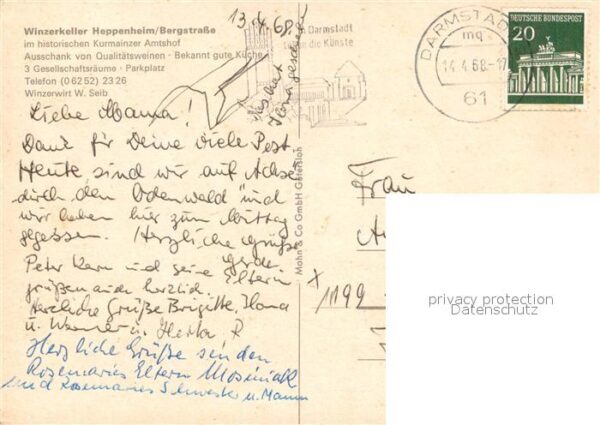 Winzerkeller Heppenheim/Bergstraße
im historischen Kurmainzer Amtshof
Ausschank von Qualitätsweinen · Bekannt gute Küche
3 Gesellschaftsräume · Parkplatz
Telefon (0 62 52) 23 26
Winzerwirt W. Seib
13.4.68.
Liebe Mama!
Dank für Deine viele Post.
Heute sind wir auf Achse
durch den Odenwald und
wir haben hier zum Mittag
gegessen. Herzliche Grüße
Gerda
Peter Kern und seine Eltern
grüßen auch herzlich.
Herzliche Grüße Brigitte, Ilona
u. Werner u. Herta, P
Herzliche Grüße senden
Rosemaries Eltern
und Rosemaries Schwester u. Mann
Mohn & Co GmbH Gütersloh
Darmstadt
die Künste
DARMSTADT
mq
14.4.68.-17
61
DEUTSCHE BUNDESPOST
20
Frau
1199
privacy protection
Datenschutz